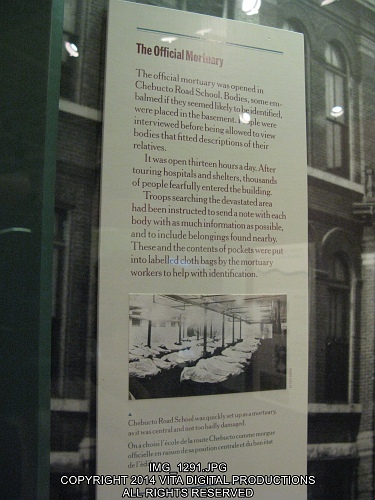 The Official Mortuary
The official mortuary was opened in
Chebucto Road School. Bodies, some em-
balmed if they seemed likely to be identified,
were placed in the basement. People were
interviewed before being allowed to view
bodies that fitted descriptions of their
relatives.
It was open thirteen hours a day. After
touring hospitals and shelters, thousands
of people fearfully entered the building.
Troops searching the devastated area
had been instructed to send a note with each
body with as much information as possible,
and to include belongings found nearby.
These and the contents of pockets were put
into labelled cloth bags by the mortuary
workers to help with identification.
Chebucto Road School was quickly set up as a mortuary,
as it was central and not too badly damaged.
On a choisi l'école de la route Chebucto comme morgue
officielle en raison de sa position centrale et du bon état
de l'édi
IMG_1291.JPG
COPYRIGHT 2014 VITA DIGITAL PRODUCTIONS
ALL RIGHTS RESERVED